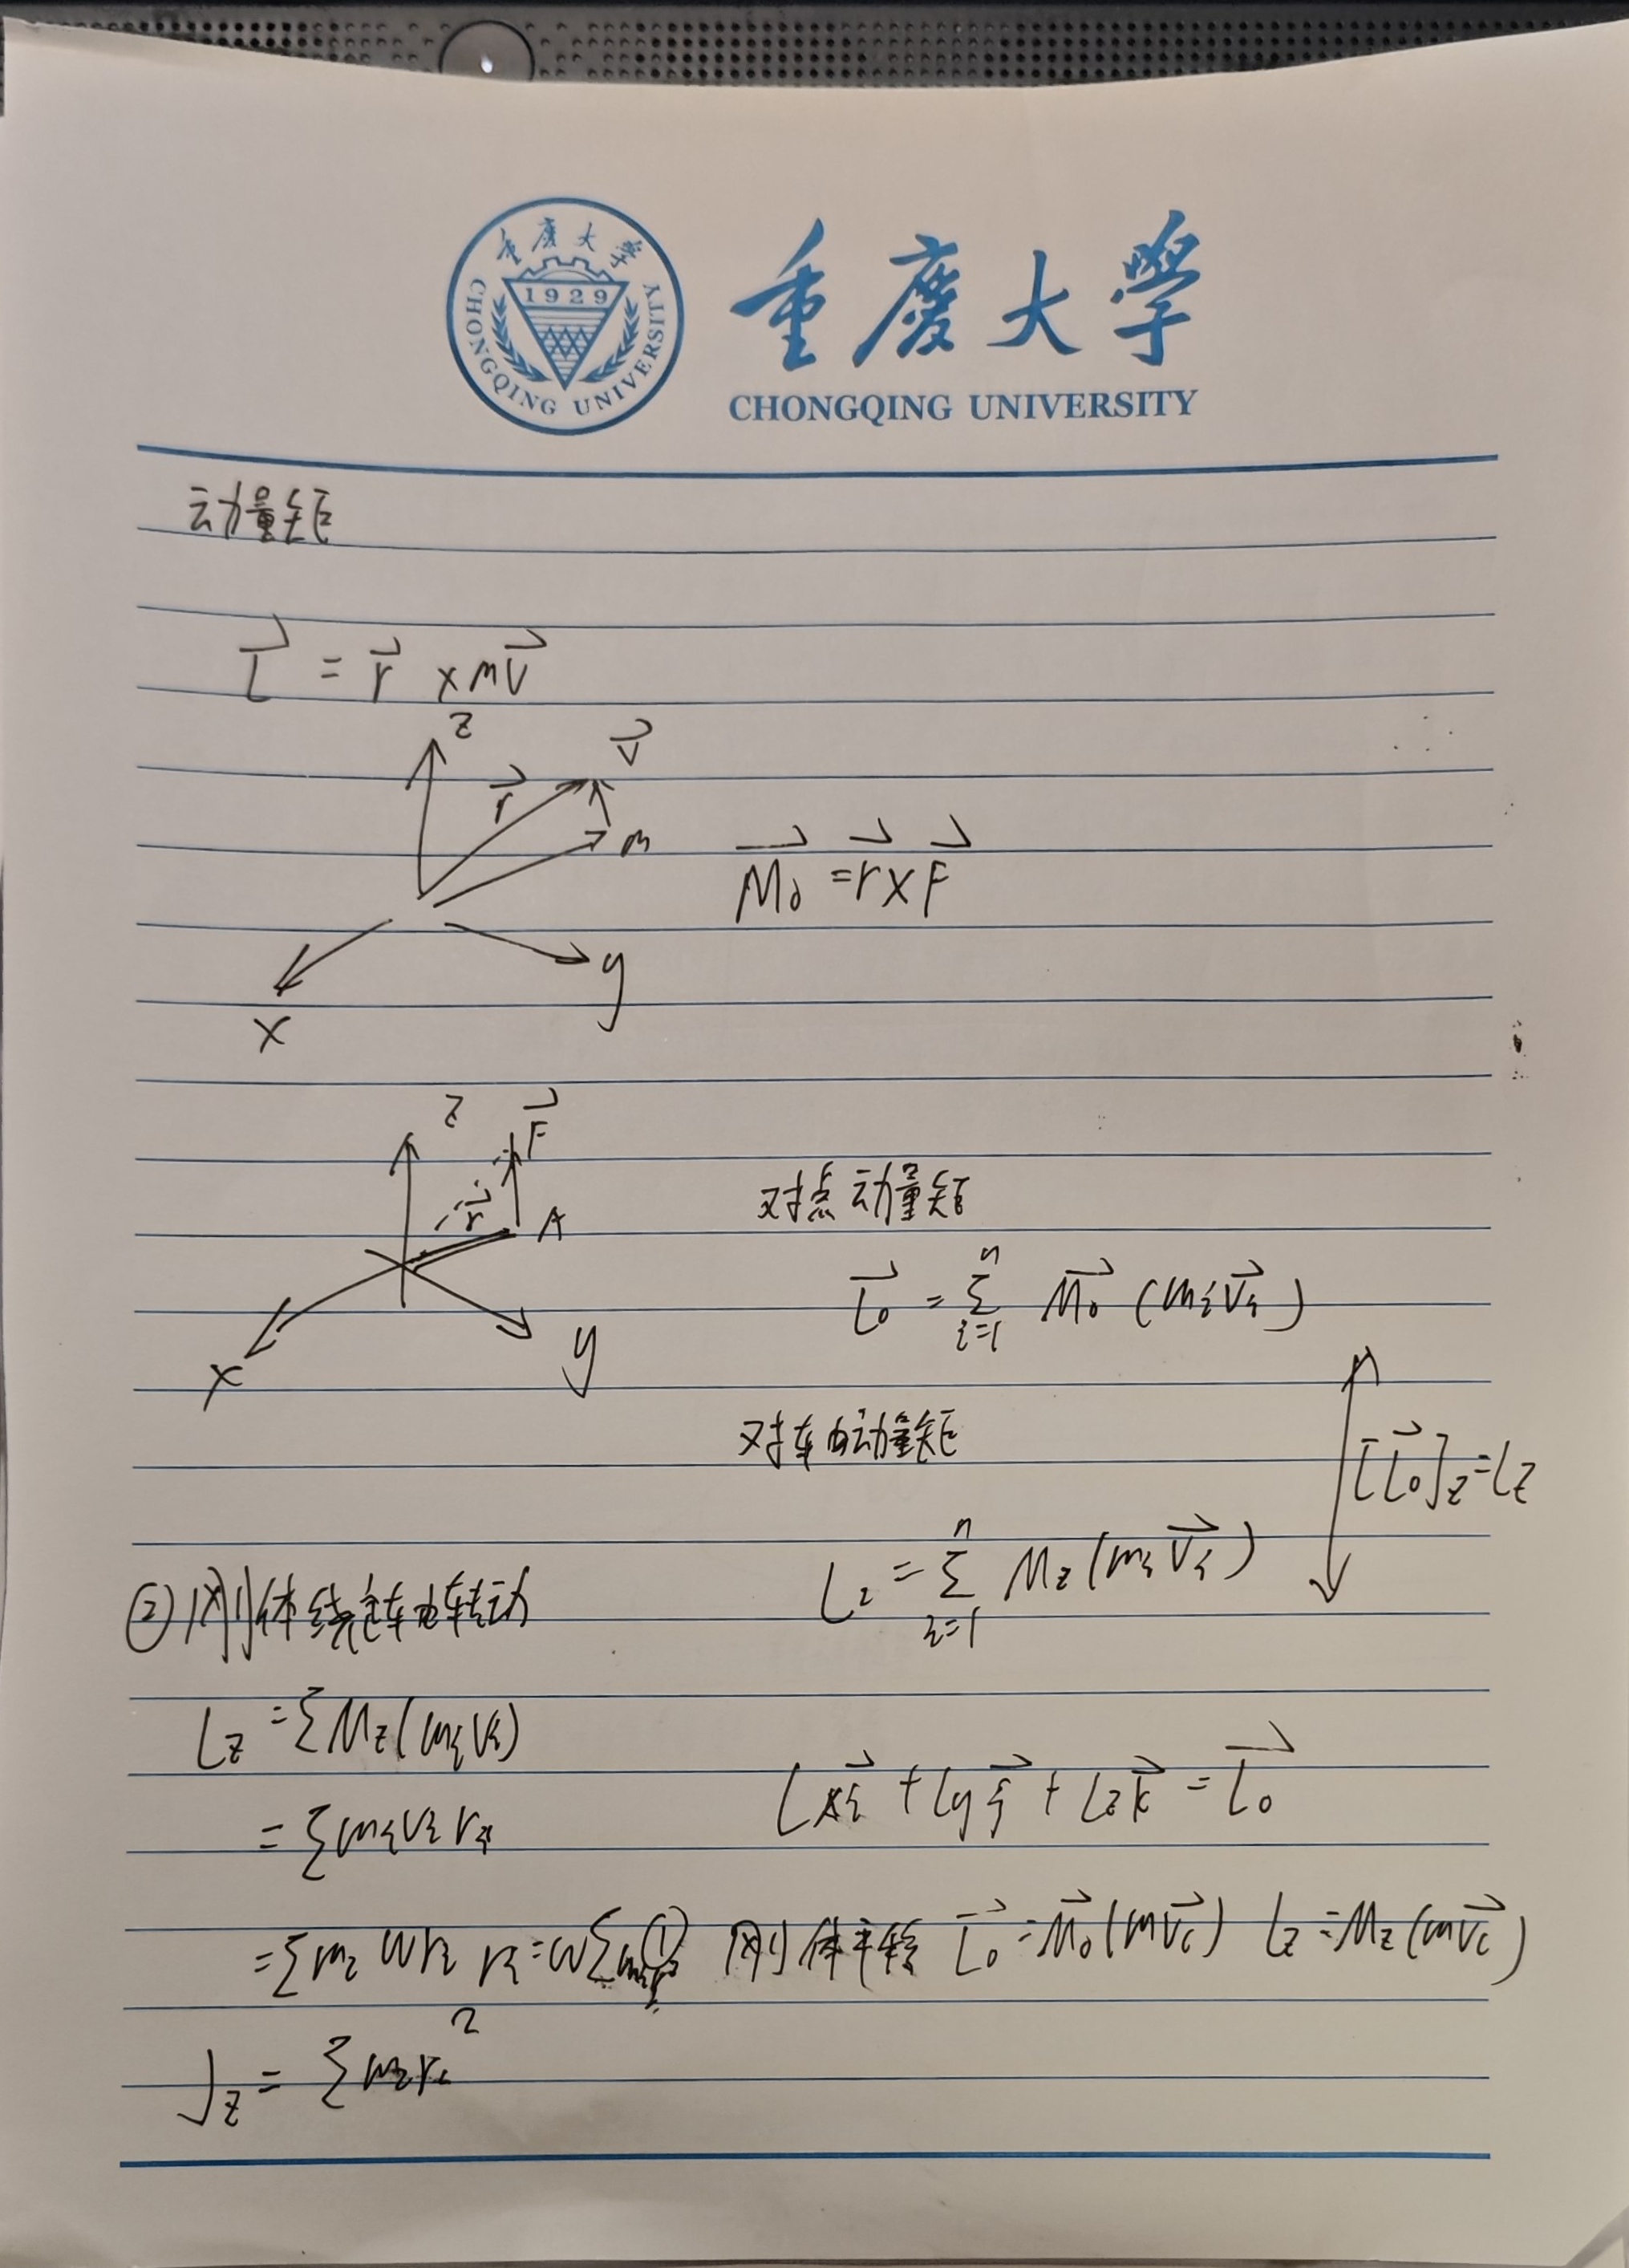 重慶大學
1929
CHONGQING UNIVERSITY
重慶大學
CHONGQING UNIVERSITY
动量矩
L⃗ = r⃗ × mv⃗
z
r⃗
v⃗
m
M⃗o = r⃗ × F⃗
x
y
z
F⃗
r⃗
A
x
y
对点动量矩
L⃗o = Σ(i=1→n) M⃗o (miv⃗i)
对轴动量矩
[L⃗o]z = Lz
Lz = Σ(i=1→n) Mz (miv⃗i)
② 刚体绕定轴转动
Lz = ΣMz(mivi)
= Σmivi ri
= Σmi ωri ri = ωΣmiri²
Jz = Σmiri²
Lxi⃗ + Lyj⃗ + Lzk⃗ = L⃗o
① 刚体平移 L⃗o = M⃗o(mv⃗c) Lz = Mz(mv⃗c)